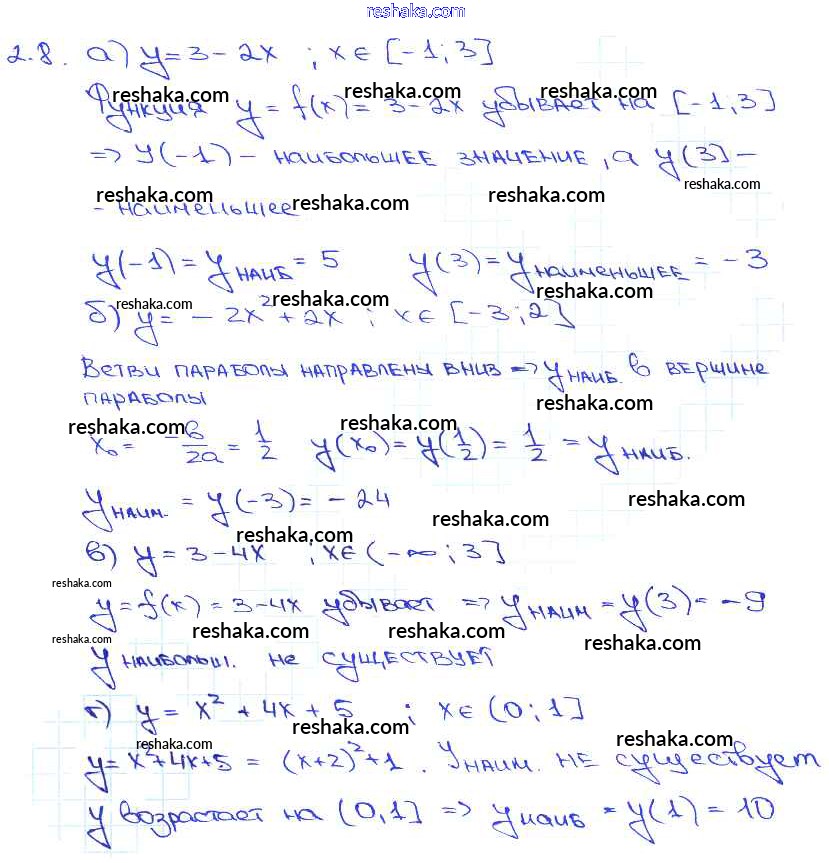 reshaka.com
2.8. а) y = 3 - 2x ; x ∈ [-1; 3]
reshaka.com reshaka.com reshaka.com
Функция y = f(x) = 3 - 2x убывает на [-1; 3]
=> y(-1) - наибольшее значение, а y(3) -
reshaka.com
reshaka.com reshaka.com reshaka.com
- наименьшее
y(-1) = y наиб = 5 y(3) = y наименьшее = -3
reshaka.com reshaka.com reshaka.com
б) y = -2x² + 2x ; x ∈ [-3; 2]
Ветви параболы направлены вниз => y наиб. в вершине
параболы
reshaka.com
reshaka.com reshaka.com
x₀ = -в/2a = 1/2 y(x₀) = y(1/2) = 1/2 = y наиб.
y наим. = y(-3) = -24
reshaka.com
reshaka.com
в) y = 3 - 4x ; x ∈ (-∞; 3]
reshaka.com
y = f(x) = 3 - 4x убывает => y наим = y(3) = -9
reshaka.com reshaka.com reshaka.com reshaka.com
y наибольш. не существует
г) y = x² + 4x + 5 ; x ∈ (0; 1]
reshaka.com reshaka.com reshaka.com
y = x² + 4x + 5 = (x+2)² + 1. y наим. не существует
y возрастает на (0, 1] => y наиб = y(1) = 10